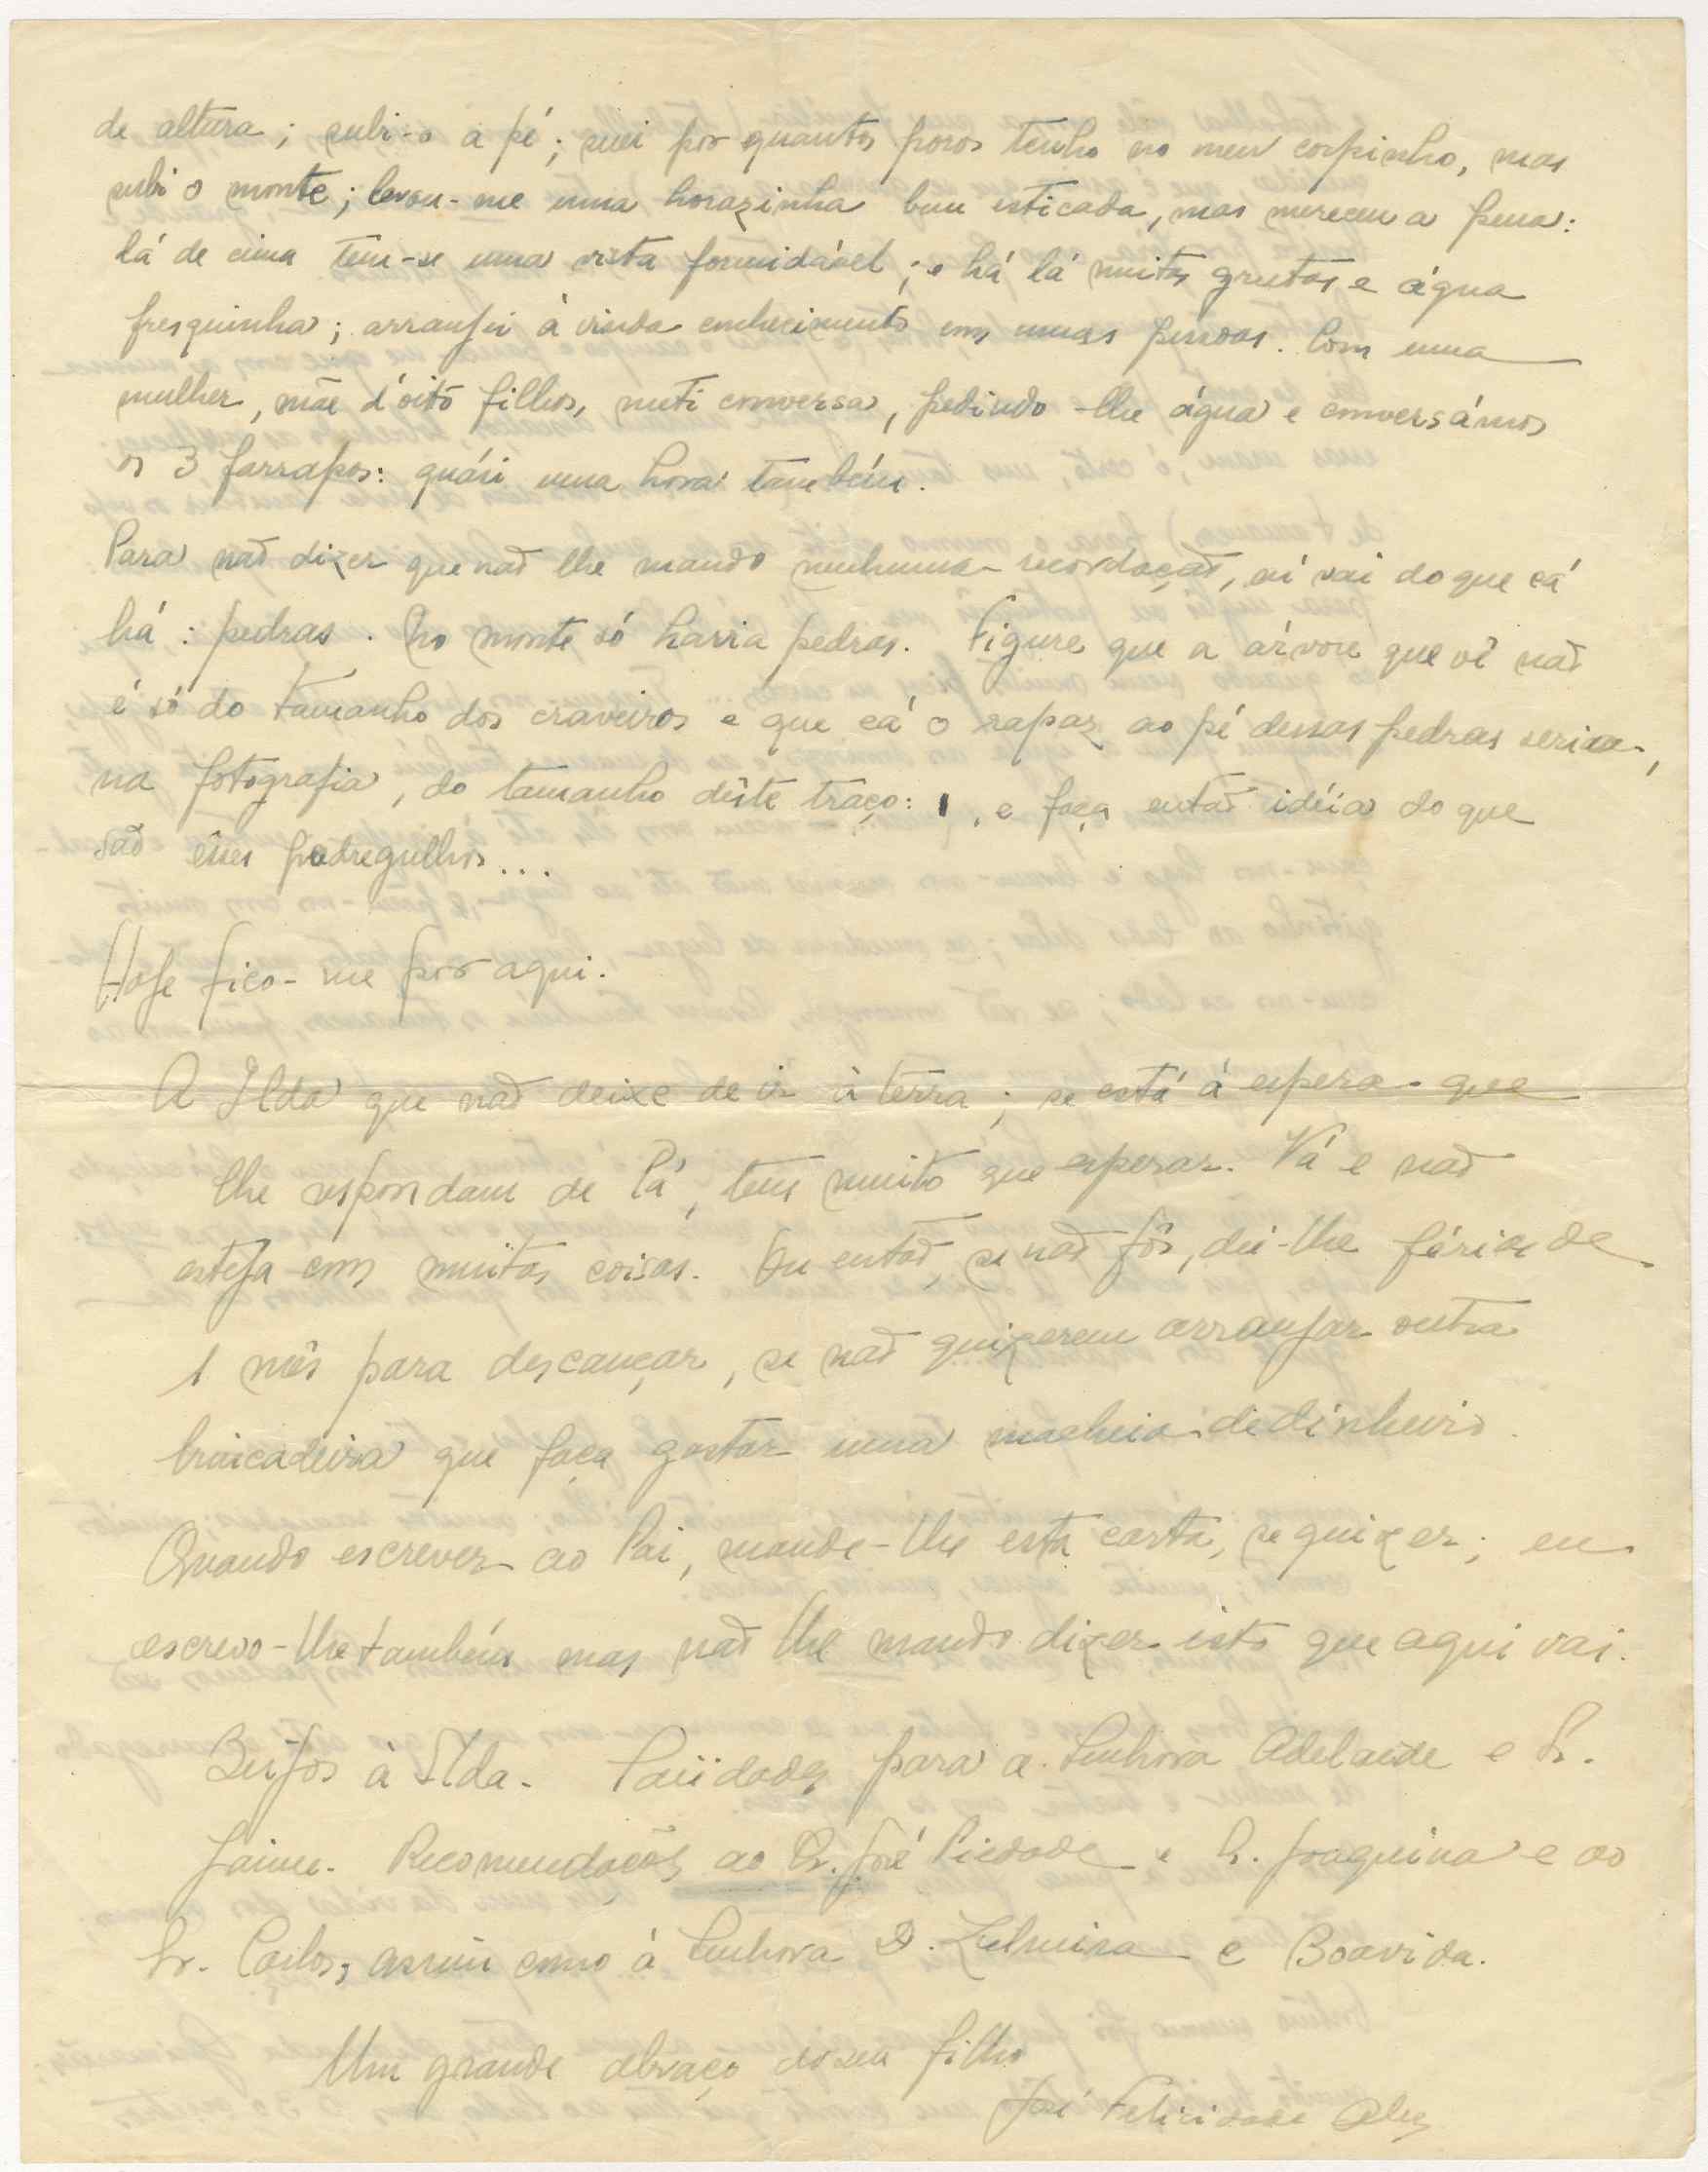 de altura; subi-o a pé; suei por quantos poros tenho no meu corpinho, mas
subi o monte; levou-me uma horazinha bem esticada, mas mereceu a pena:
lá de cima tem-se uma vista formidável; e há lá muitas grutas e água
fresquinha; arranjei à vinda conhecimento com umas pessoas. Com uma
mulher, mãe d'oito filhos, meti conversa, pedindo-lhe água e conversámos
os 3 farrapos: quási uma hora também.
Para não dizer que não lhe mando nenhuma recordação, aí vai do que cá
há: pedras. No monte só havia pedras. Figure que a árvore que vê não
é só do tamanho dos craveiros e que cá o rapaz ao pé dessas pedras seria,
na fotografia, do tamanho dêste traço: ı, e faça então idéia do que
são êsses pedregulhos...
Hoje fico-me por aqui.
A Ilda que não deixe de ir à terra; se está á espera que
lhe respondam de lá, tem muito que esperar. Vá e não
esteja com muitas coisas. Ou então, se não fôr, dê-lhe férias de
1 mês para descançar, se não quizerem arranjar outra
brincadeira que faça gastar uma macheia de dinheiro.
Quando escrever ao Pai, mande-lhe esta carta, se quizer; eu
escrevo-lhe também mas não lhe mando dizer isto que aqui vai.
Beijos à Ilda. Saüdades para a Senhora Adelaide e Sr.
Jaime. Recomendações ao Sr. José Piedade e S. Joaquina e ao
Sr. Carlos, assim como à Senhora D. Zulmira e Boavida.
Um grande abraço do seu filho
José Felicidade Alves